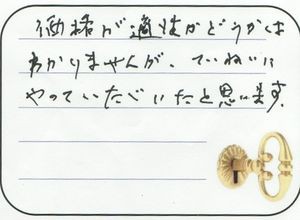 価格が適性かどうかは
わかりませんが、ていねいに
やっていただいたと思います。